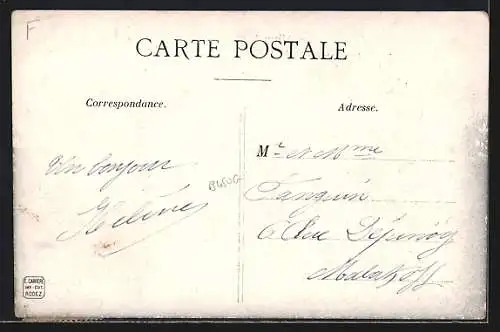 F
CARTE POSTALE
Correspondance.
Adresse.
Un bonjour
Hélène
Mr & Mme
Tanguin
6 Rue
Malakoff
E. CARRÈRE
IMP.-EDIT.
RODEZ